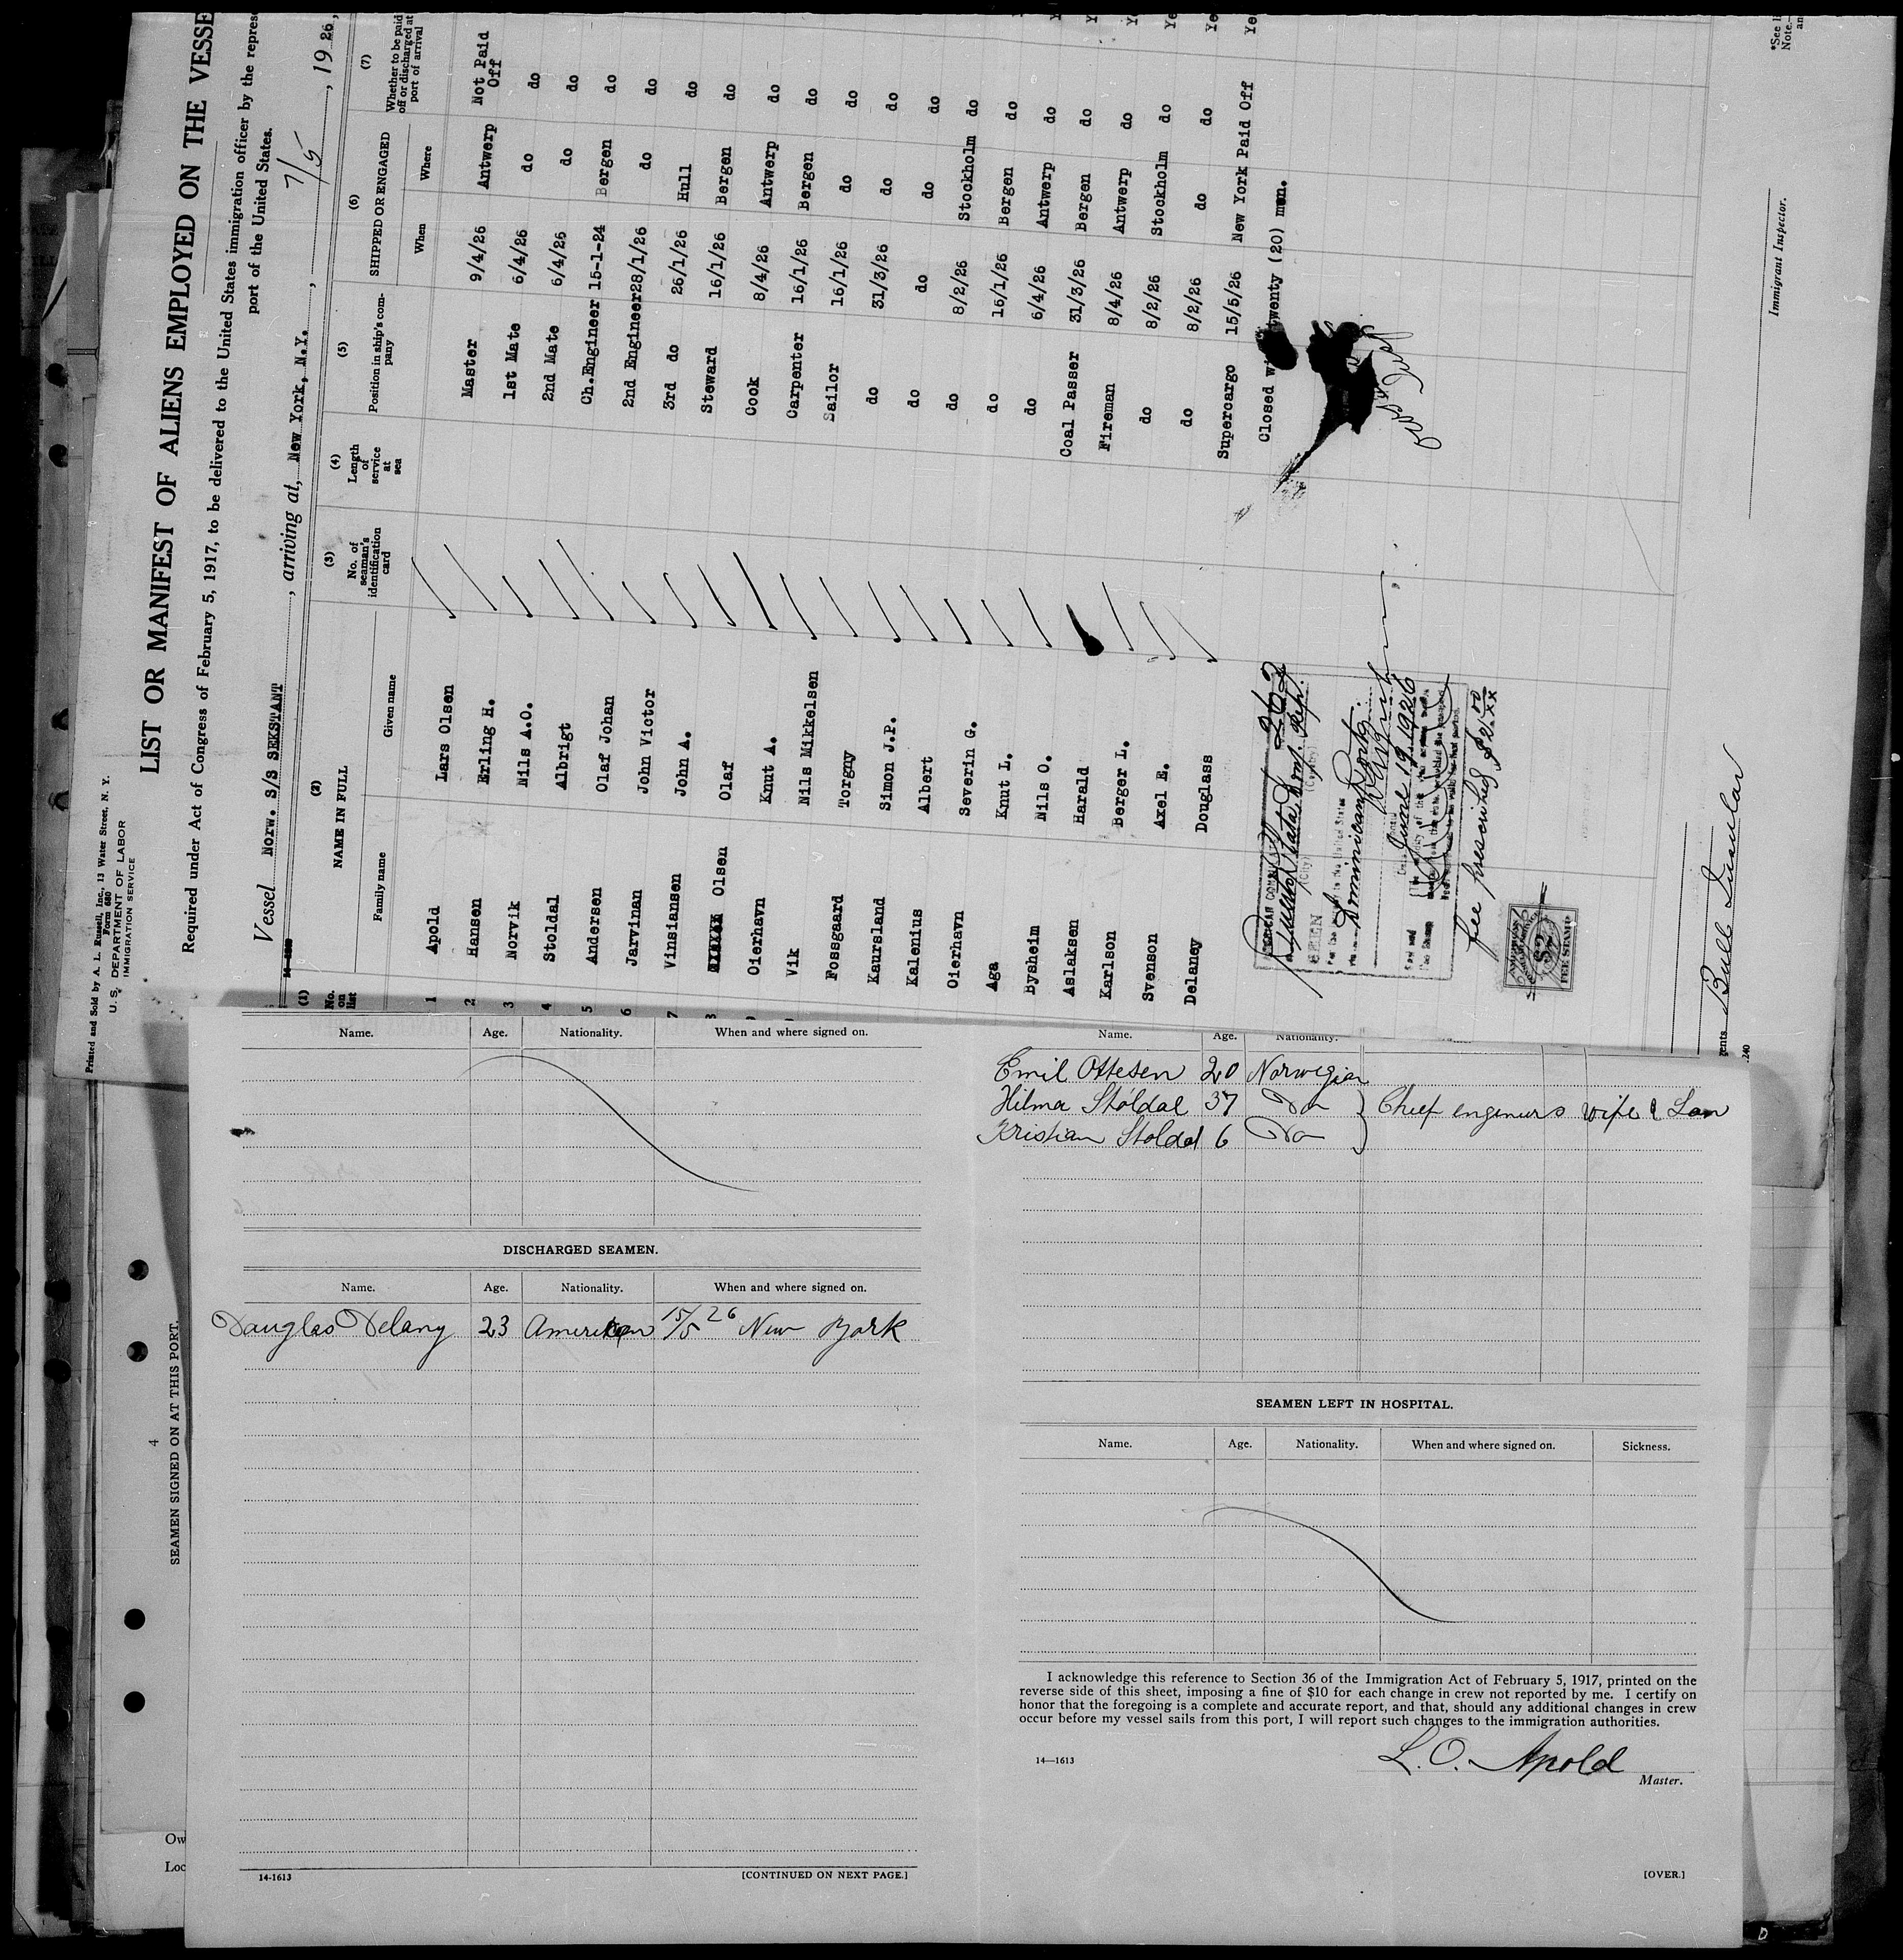 Printed and Sold by A. L. Russell, Inc., 13 Water Street, N. Y.
Form 680
U. S. DEPARTMENT OF LABOR
IMMIGRATION SERVICE
LIST OR MANIFEST OF ALIENS EMPLOYED ON THE VESSE
Required under Act of Congress of February 5, 1917, to be delivered to the United States immigration officer by the repres
port of the United States.
Vessel Norw. S/S SEKSTANT, arriving at, New York, N.Y., 7/5, 19 26,
(1) (2) (3) (4) (5) (6) (7)
No. on list NAME IN FULL No. of seaman's identification card Length of service at sea Position in ship's company SHIPPED OR ENGAGED Whether to be paid off or discharged at port of arrival
Family name Given name When Where
1 Apold Lars Olsen Master 9/4/26 Antwerp Not Paid Off
2 Hansen Erling H. 1st Mate 6/4/26 do do
3 Norvik Nils A.O. 2nd Mate 6/4/26 do do
4 Stoldal Albrigt Ch.Engineer 15-1-24 Bergen do
5 Andersen Olaf Johan 2nd Engineer 28/1/26 do do
6 Jarvinan John Victor 3rd do 26/1/26 Hull do
7 Vinsiansen John A. Steward 16/1/26 Bergen do
8 Olsen Olaf Cook 8/4/26 Antwerp do
9 Oierhavn Knut A. Carpenter 16/1/26 Bergen do
Vik Nils Mikkelsen Sailor 16/1/26 do do
Fossgaard Torgny do 31/3/26 do do
Kaursland Simon J.P. do do do do
Kalenius Albert do 8/2/26 Stockholm do
Oierhavn Severin G. do 16/1/26 Bergen do
Aga Knut L. do 6/4/26 Antwerp do
Bysheim Nils O. Coal Passer 31/3/26 Bergen do
Aslaksen Harald Fireman 8/4/26 Antwerp do
Karlson Berger L. do 8/2/26 Stockholm do
Svenson Axel E. do 8/2/26 do do
Delaney Douglass Supercargo 15/5/26 New York Paid Off
Closed wi twenty (20) men.
June 19 1926
Fee prescribed $2.00
$2
FEE STAMP
Bull
Immigrant Inspector.
*See li
Note.—
an
Name. Age. Nationality. When and where signed on.
DISCHARGED SEAMEN.
Name. Age. Nationality. When and where signed on.
Douglas Delany 23 American 15/5 26 New York
14-1613 [CONTINUED ON NEXT PAGE.]
Name. Age. Nationality.
Emil Ottesen 20 Norwegian
Hilma Støldal 37 Do } Chief engineers wife & Son
Kristian Stoldal 6 Do
SEAMEN LEFT IN HOSPITAL.
Name. Age. Nationality. When and where signed on. Sickness.
I acknowledge this reference to Section 36 of the Immigration Act of February 5, 1917, printed on the
reverse side of this sheet, imposing a fine of $10 for each change in crew not reported by me. I certify on
honor that the foregoing is a complete and accurate report, and that, should any additional changes in crew
occur before my vessel sails from this port, I will report such changes to the immigration authorities.
14—1613 L. O. Apold
Master.
[OVER.]
4
SEAMEN SIGNED ON AT THIS PORT.
Ow
Loc
D